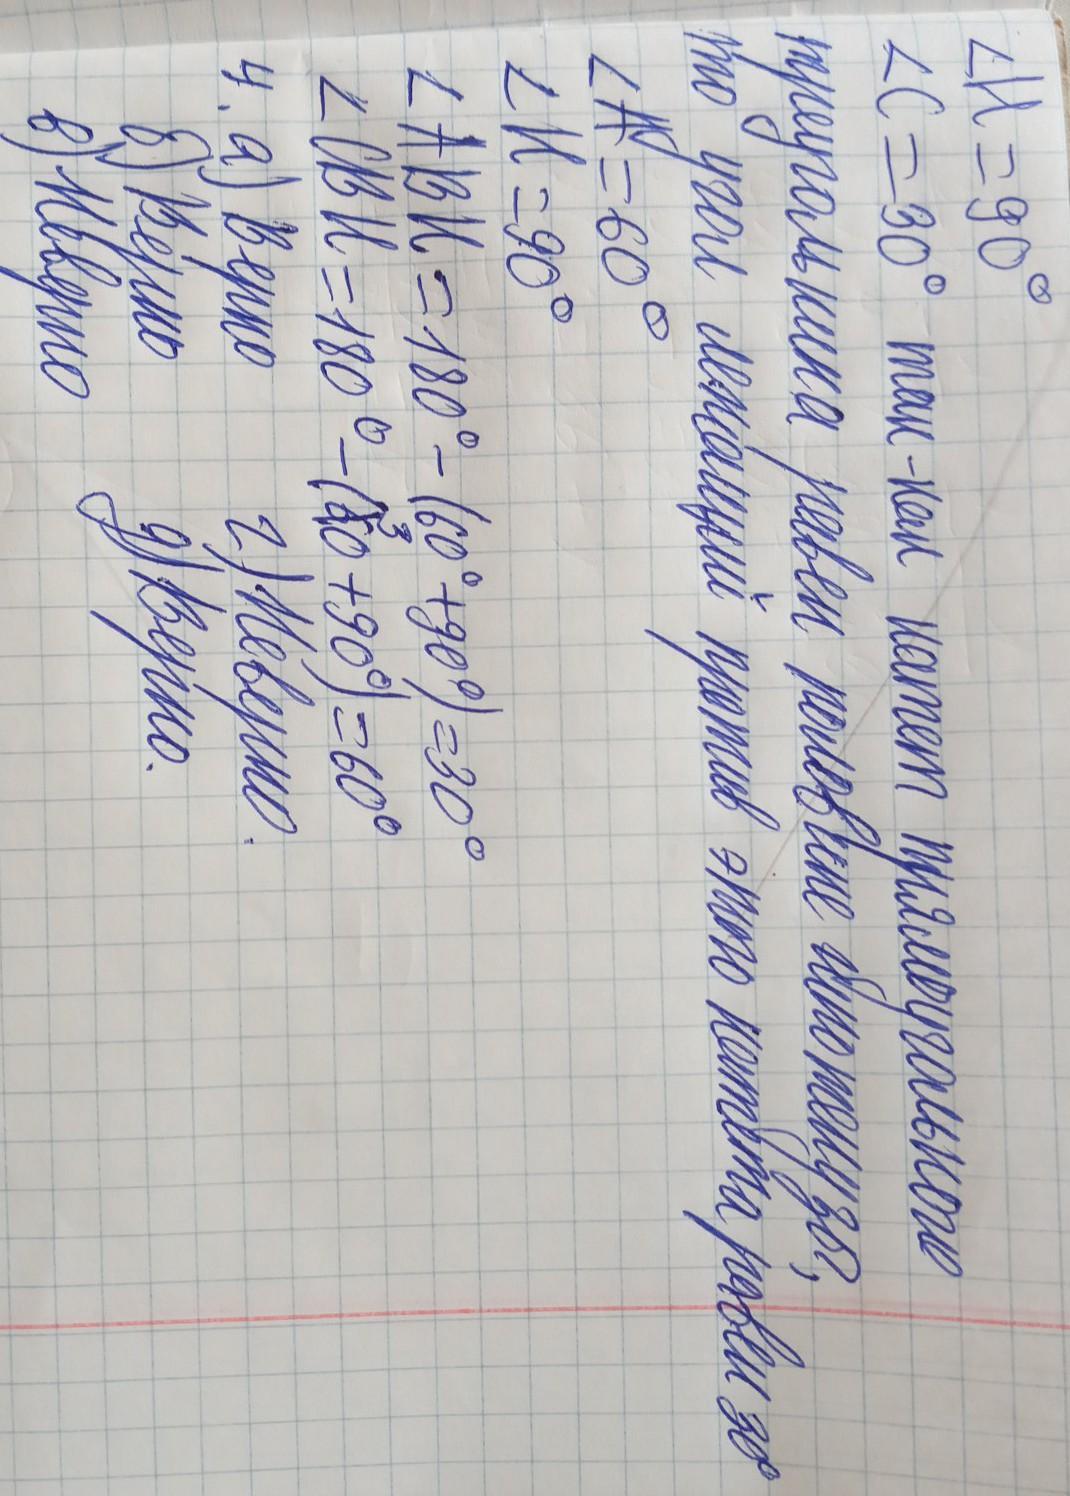 ∠H = 90°
∠C = 30° так-как катет прямоугольного
треугольника равен половине гипотенузы,
то угол лежащий против этого катета равен 30°
∠A = 60°
∠H = 90°
∠ABH = 180° - (60° + 90°) = 30°
∠CBH = 180° - (30 + 90°) = 60°
4. а) Верно г) Неверно.
б) Верно д) Верно.
в) Неверно